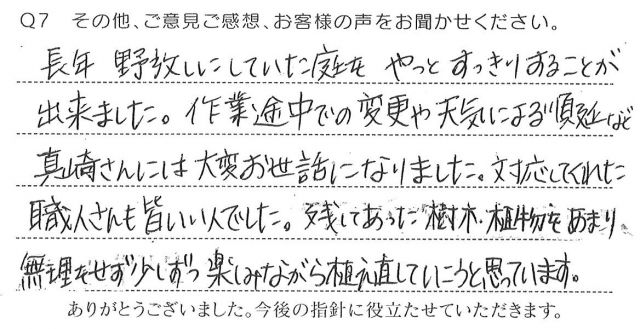 Q7 その他、ご意見ご感想、お客様の声をお聞かせください。
長年 野放しにしていた庭を やっと すっきりすることが
出来ました。作業途中での変更や天気による順延など
真崎さんには大変お世話になりました。対応してくれた
職人さんも皆いい人でした。残してあった樹木・植物をあまり
無理をせず少しずつ楽しみながら植え直していこうと思っています。
ありがとうございました。今後の指針に役立たせていただきます。